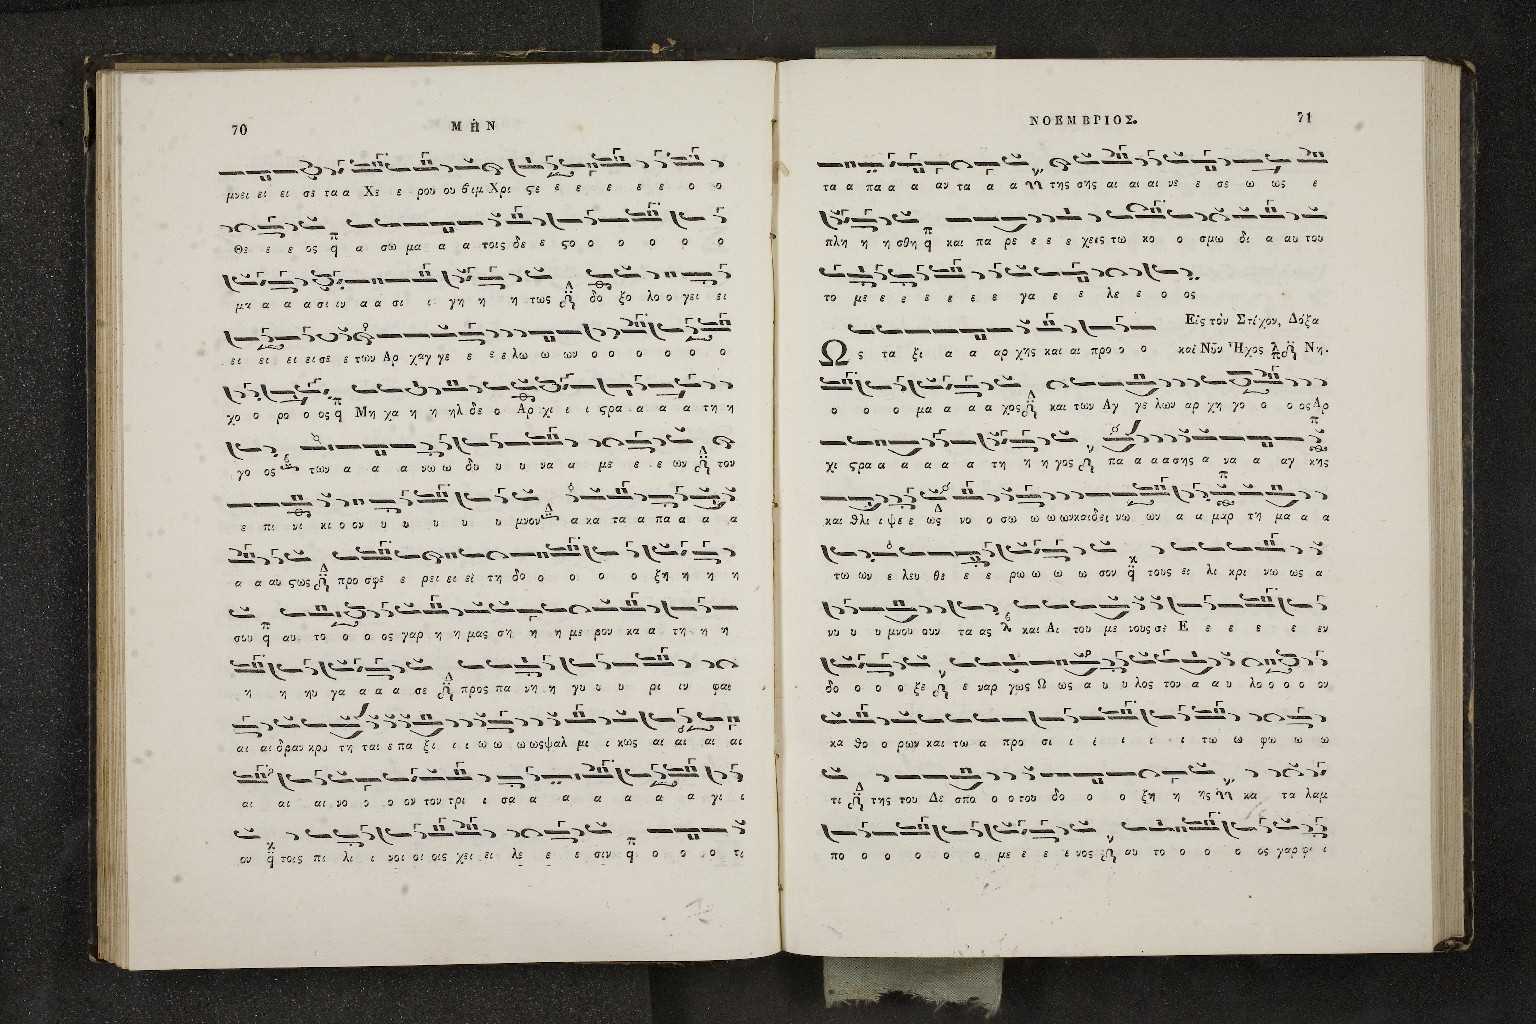 70
ΜῊΝ
μνει ει ει σε τα α Χε ε ρου ου βιμ Χρι ςε ε ε ε ε ε ε ο ο
Θε ε ε ος α σω μα α α τοις δε ε ςο ο ο ο ο ο
μα α α α σι ιν α α σι ι γη η η τως δο ξο λο ο γει ει
ει ει ει ει σε ε των Αρ χαγ γε ε ε ε λω ω ων ο ο ο ο ο ο
χο ο ρο ο ος Μη χα η η ηλ δε ο Αρ χι ι ι ςρα α α α τη η
γο ος των α α α νω ω δυ υ υ να α με ε ε ων τον
ε πι νι κι ο ον υ υ υ υ υ μνον α κα τα α πα α α α
α α αυ ςως προ σφε ε ρει ει ει τη δο ο ο ο ο ξη η η η
σου αυ το ο ο ος γαρ η η μας ση η η με ρον κα α τη η η
η η ηυ γα α α α σε προς πα νη η γυ υ υ ρι ιν φαι
αι αι δραυ κρυ τη ται ε πα ξι ι ι ω ω ω ως ψαλ μι ι κως αι αι αι αι
αι αι αι νο ο ο ον τον τρι ι σα α α α α α α γι ι
ον τοις πι λι ι νοι οι οις χει ει λε ε ε ε σιν ο ο ο τι
ΝΟΕΜΒΡΙΟΣ.
71
τα α πα α α αν τα α α της σης αι αι αι νε ε σε ω ως ε
πλη η η σθη και πα ρε ε ε ε χεις τω κο ο σμω δι α αυ του
το με ε ε ε ε ε ε γα ε ε λε ε ο ος
Εἰς τὸν Στίχον, Δόξα
Ως τα ξι α α αρ χης και αι προ ο ο καὶ Νῦν Ἦχος Νη.
ο ο ο μα α α α χος και των Αγ γε λων αρ χη γο ο ο ος Αρ
χι ςρα α α α α τη η η γος πα α α α σης α να α αγ κης
και θλι ι ψε ε ως νο ο σω ω ω ων και δει νω ων α α μαρ τη μα α α
τω ων ε λευ θε ε ε ρω ω ω ω σον τους ει λι κρι νω ως α
νυ υ υ μνου ουν τα ας και Αι του με νους σε Ε ε ε ε ε εν
δο ο ο ο ξε ε ναρ γως Ω ως α υ υ λος τον α α υ λο ο ο ο ον
κα θο ο ρων και τω α προ σι ι ι ι ι ι τω ω φω ω ω
τι της του Δε σπο ο ο του δο ο ο ξη η ης κα τα λαμ
πο ο ο ο ο ο με ε ε ε νος αυ το ο ο ο ος γαρ φι ι